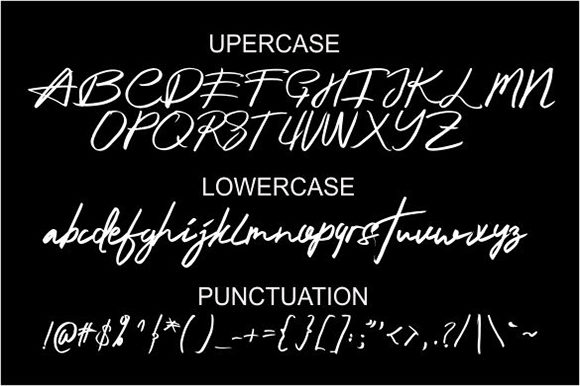 UPERCASE
ABCDEFGHIJKLMN
OPQRSTUVWXYZ
LOWERCASE
abcdefghijklmnopqrstuvwxyz
PUNCTUATION
!@#$%^&*()_-+={}[]:;"'<>,.?/|\`~